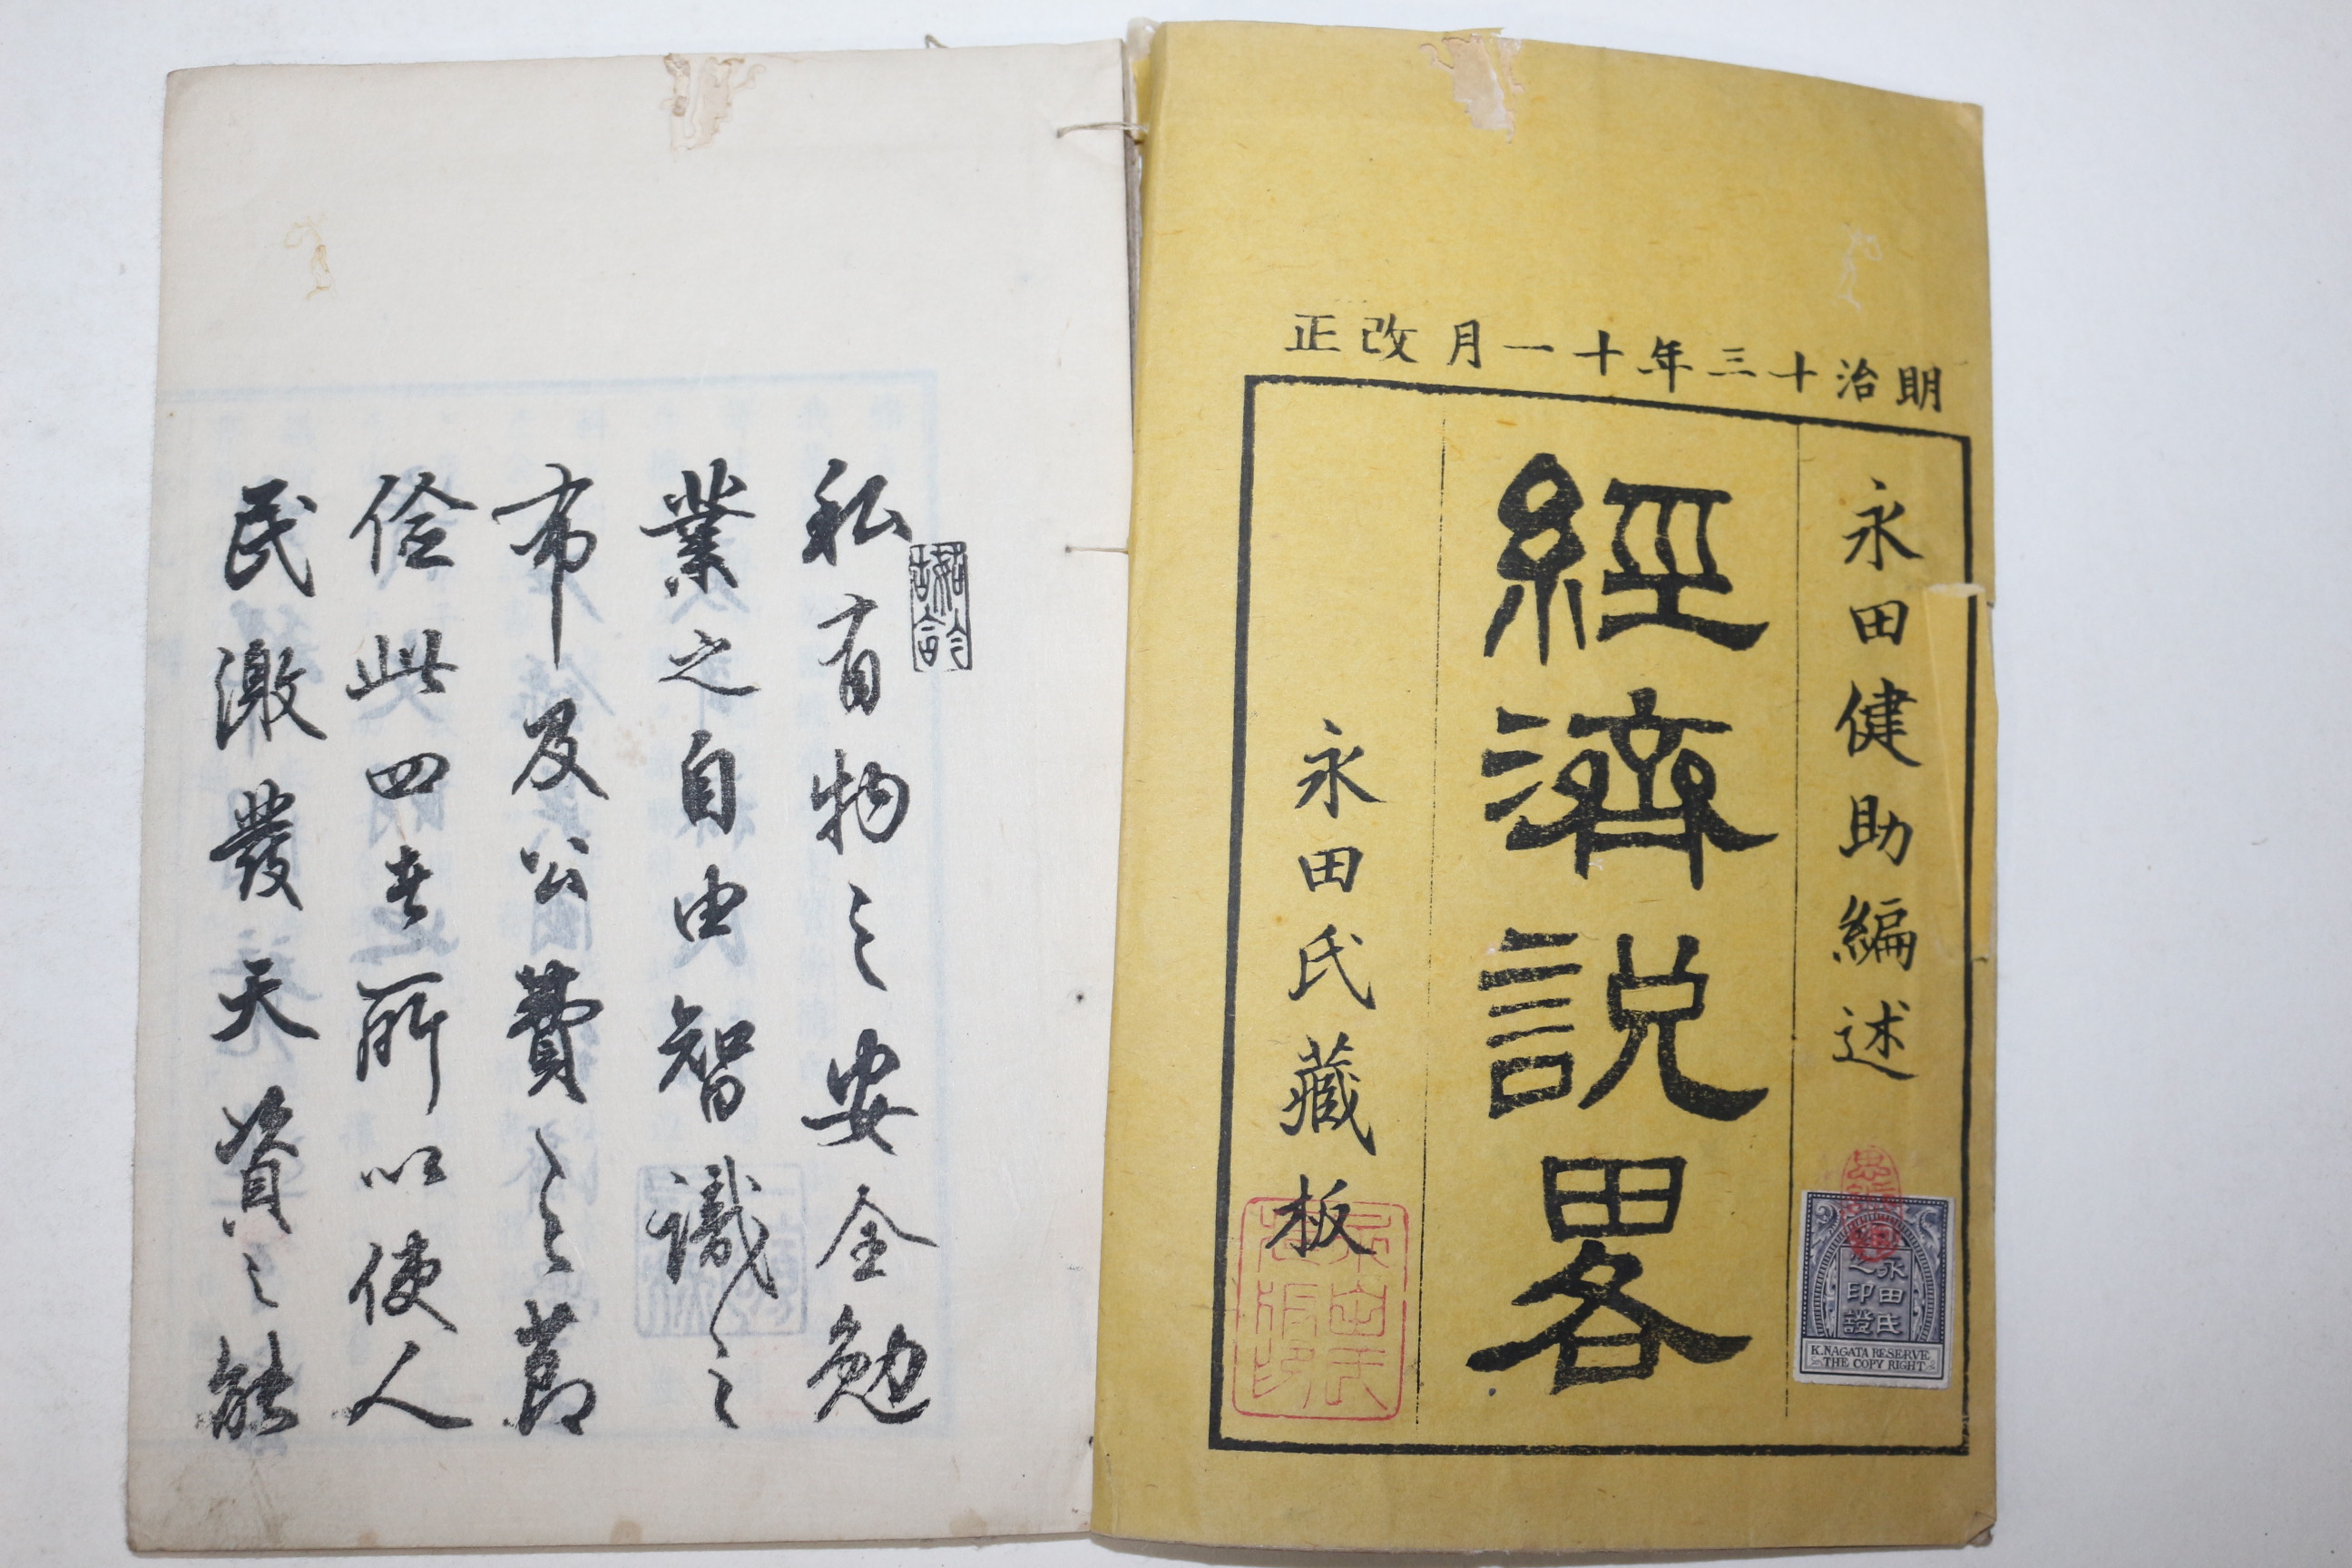 明治十三年十一月改正
永田健助編述
經濟說畧
永田氏藏板
永田氏
之印證
K.NAGATA RESERVE
THE COPY RIGHT
私有物之安全勉
業之自由智識之
布及公費之節
儉此四者所以使人
民激發天資之能